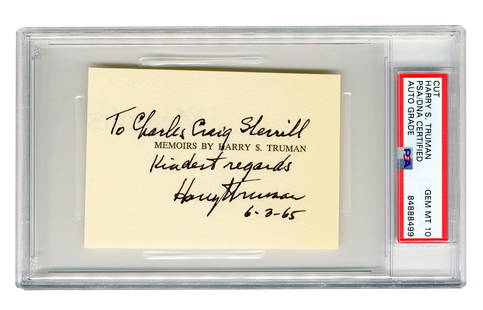 To Charles Craig Sherrill
MEMOIRS BY HARRY S. TRUMAN
Kindest regards
Harry Truman
6-3-65
CUT
HARRY S. TRUMAN
PSA/DNA CERTIFIED
AUTO GRADE
PSA
GEM MT 10
84888499